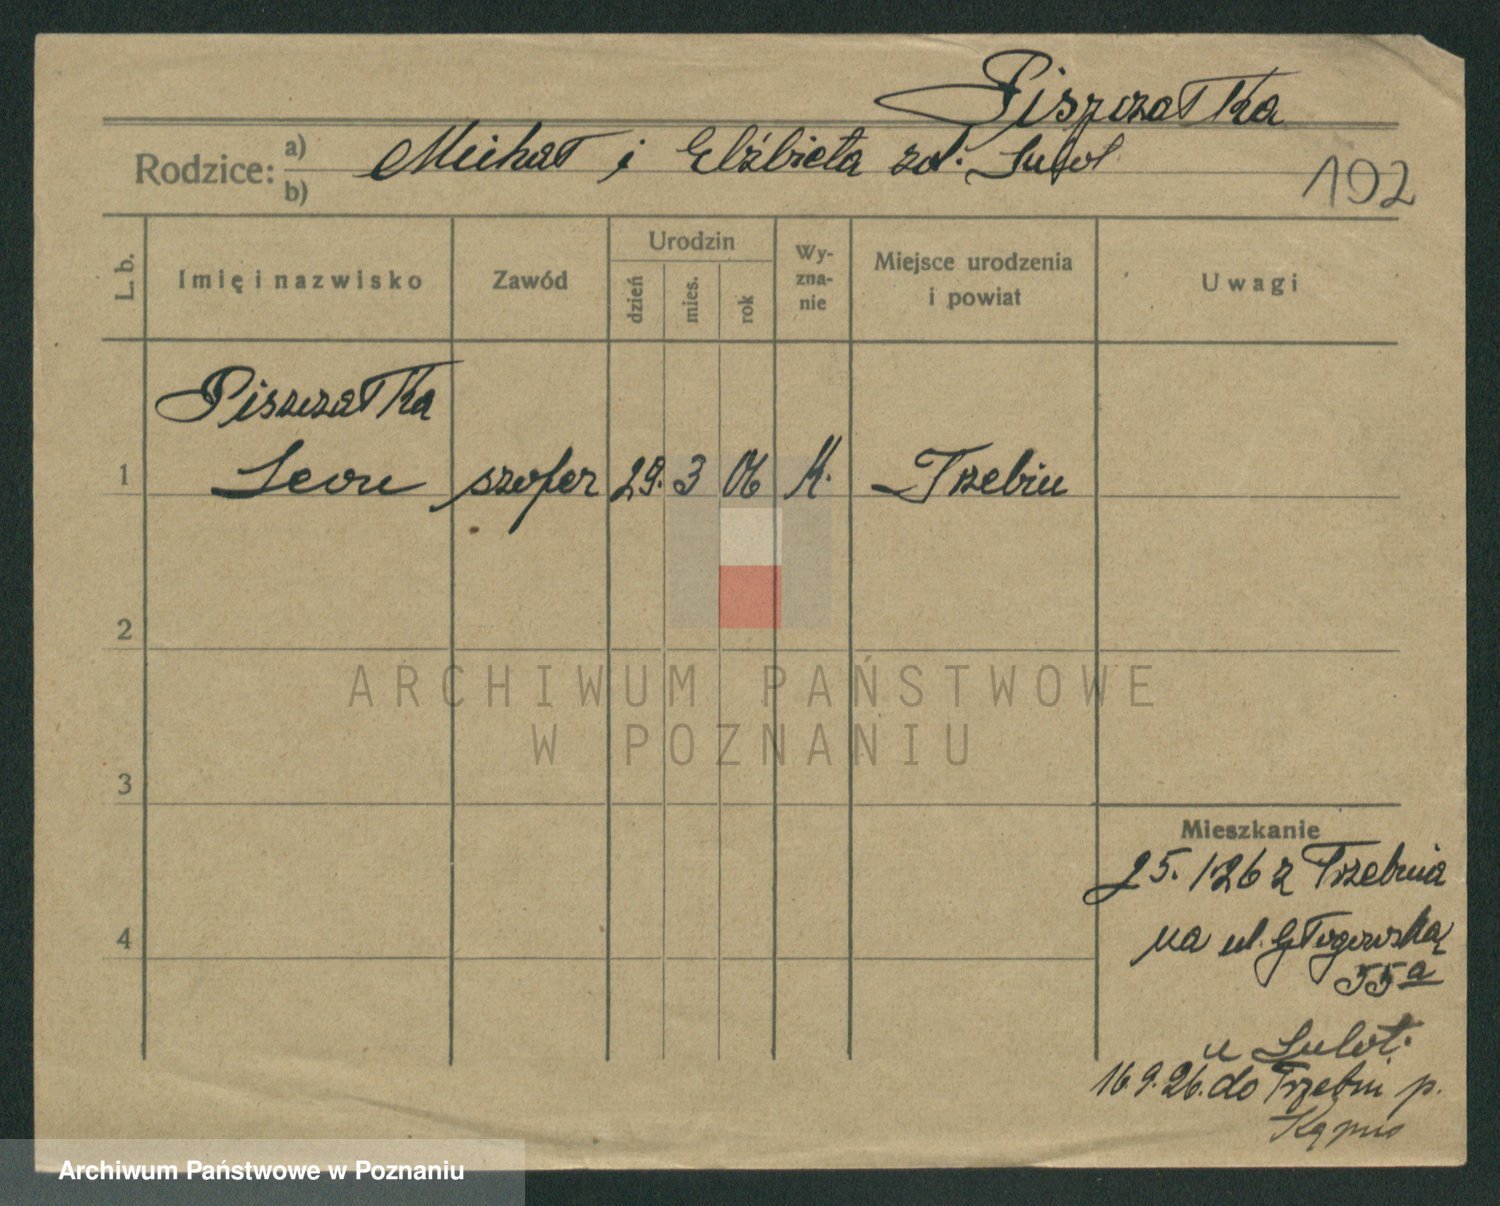 Piszczałka
Rodzice: a) b)
Michał i Elżbieta zd.
102
L. b.
Imię i nazwisko
Zawód
Urodzin
dzień
mies.
rok
Wy-
zna-
nie
Miejsce urodzenia
i powiat
Uwagi
Piszczałka
1 Leon szofer 29. 3 06 K. Trzebin
2
3
4
Mieszkanie
25. 1 26 z Trzebinia
na ul. Głogowską
55a
u
16 9. 26. do Trzebin p.
ARCHIWUM PAŃSTWOWE
W POZNANIU
Archiwum Państwowe w Poznaniu